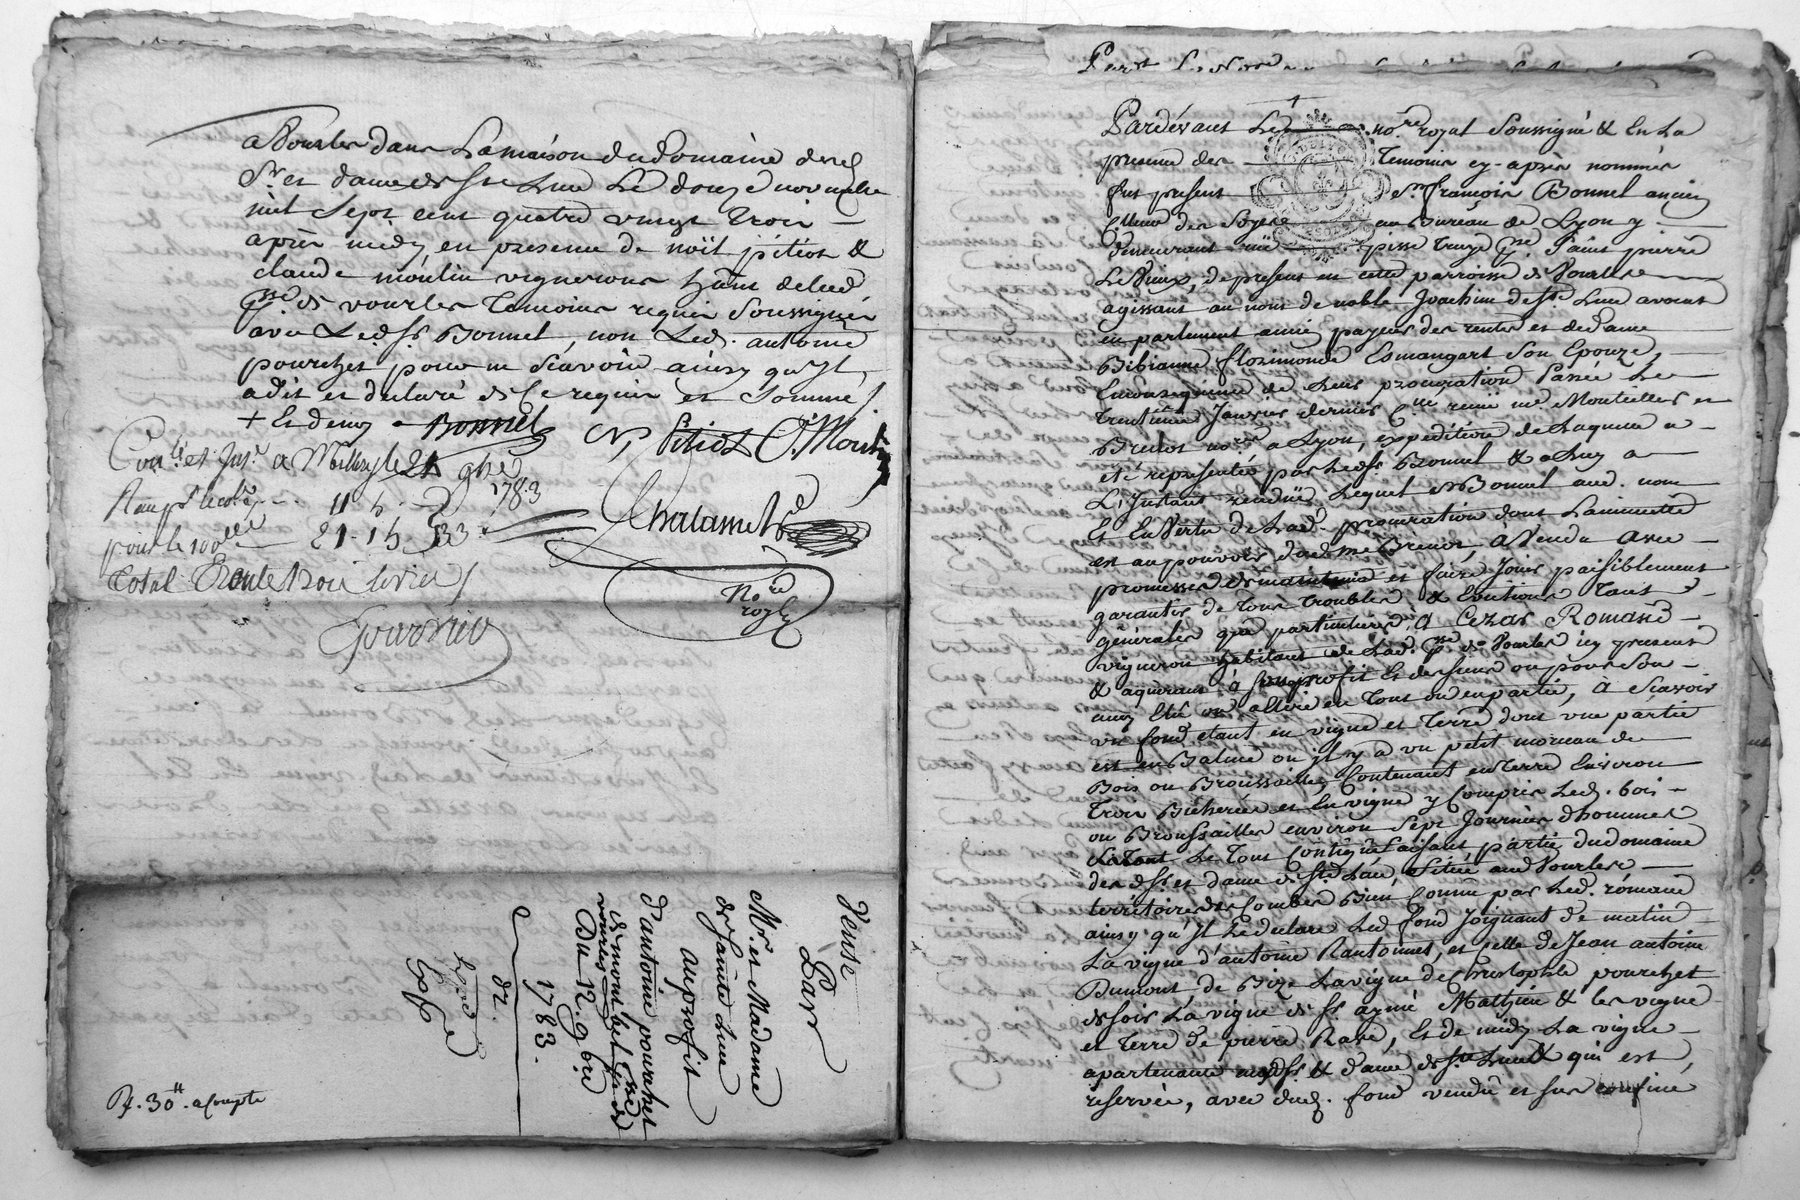 a Vourles dans La maison du domaine desd
Sr. et dame de Ste Lune Le douze novembre
mil Sept cent quatre vingt trois
après midy en presence de noël pitiot &
claude moulin vignerons habts dela d
psse de vourles Temoins requis Soussignés
avec Led Sr Bonnel, non Led. antoine
pourchet pour ne Scavoir ainsy qu'Il
a dit et declaré de ce requis et Sommé
+ Bonnel N Pitiot C. Moulin
Conlé et Insé a Millery le 21 9bre
1783
11 5
pour le 100e 21-15 33
Total Trente trois livres
Chalasset
Nore
royl
Vente
Par
Mr. et Madame
de Sainte Lune
au profit
d'antoine pourchet
Du 12. 9bre
1783.
dt.
Expé
R. 30tt. a compte
Pardevant Le nore royal Soussigné & En La
presence des Temoins cy-après nommés
fut present Sr françois Bonnel ancien
des Soyes au Bureau de Lyon y
demeurant rüe pisse truye psse Saint pierre
Le Vieux, de present en cette parroisse de Vourles
agissant au nom de noble Joachim de Ste Lune avocat
en parlement ancien payeur des rentes et de Dame
Bibianne florimonde Esmangart Son Epouze,
En consequence de Leur procuration Passée Le
trentième Janvier dernier reçüe me. Monteiller et
Brenot nores a Lyon, expeditions de Laquelle a
été representée par Led Sr Bonnel & a Luy a
L'Instant rendüe Lequel Sr Bonnel aud. nom
Et En Vertu de Lad. procuration dont La minutte
est au pouvoir dud me Brenot, a Vendu avec
promesse de maintenir et faire Jouir paisiblement
garantir de tous troubles & Evictions tant
generales que particulieres, A Cezar Romand
vigneron habitant de Lad. psse de Vourles icy present
& aquerant à Son profit Et de Sieurs ou pour Son
amy Elû ou a Elire en Tout ou en partie, A Scavoir
un fond etant en vigne et Terre dont une partie
est en Balme ou Il y a un petit morceau de
Bois ou Broussailles Contenant en Terre Environ
Trois Bicherées et En vigne y Compris Led. bois
ou Broussailles environ Sept Journées d'hommes
Le Tout Contigüe faisant partie du domaine
des d Sr. et dame de Ste Lune, Situé aud Vourles
territoire des Combes Bien Connu par Led. romand
ainsy qu'Il Le declare Led fond Joignant de matin
La vigne d'antoine Rantonnet, et Celle de Jean antoine
Dumont de Bize La vigne de Christophle pourchet
de Soir La vigne de Sr aymé Mathieu & les vigne
et Terre de pierre Rave, Et de midy La vigne
apartenante auxd Sr & dame de Ste Lune & qui est
réservée, avec dud. fond vendu et Sus confiné